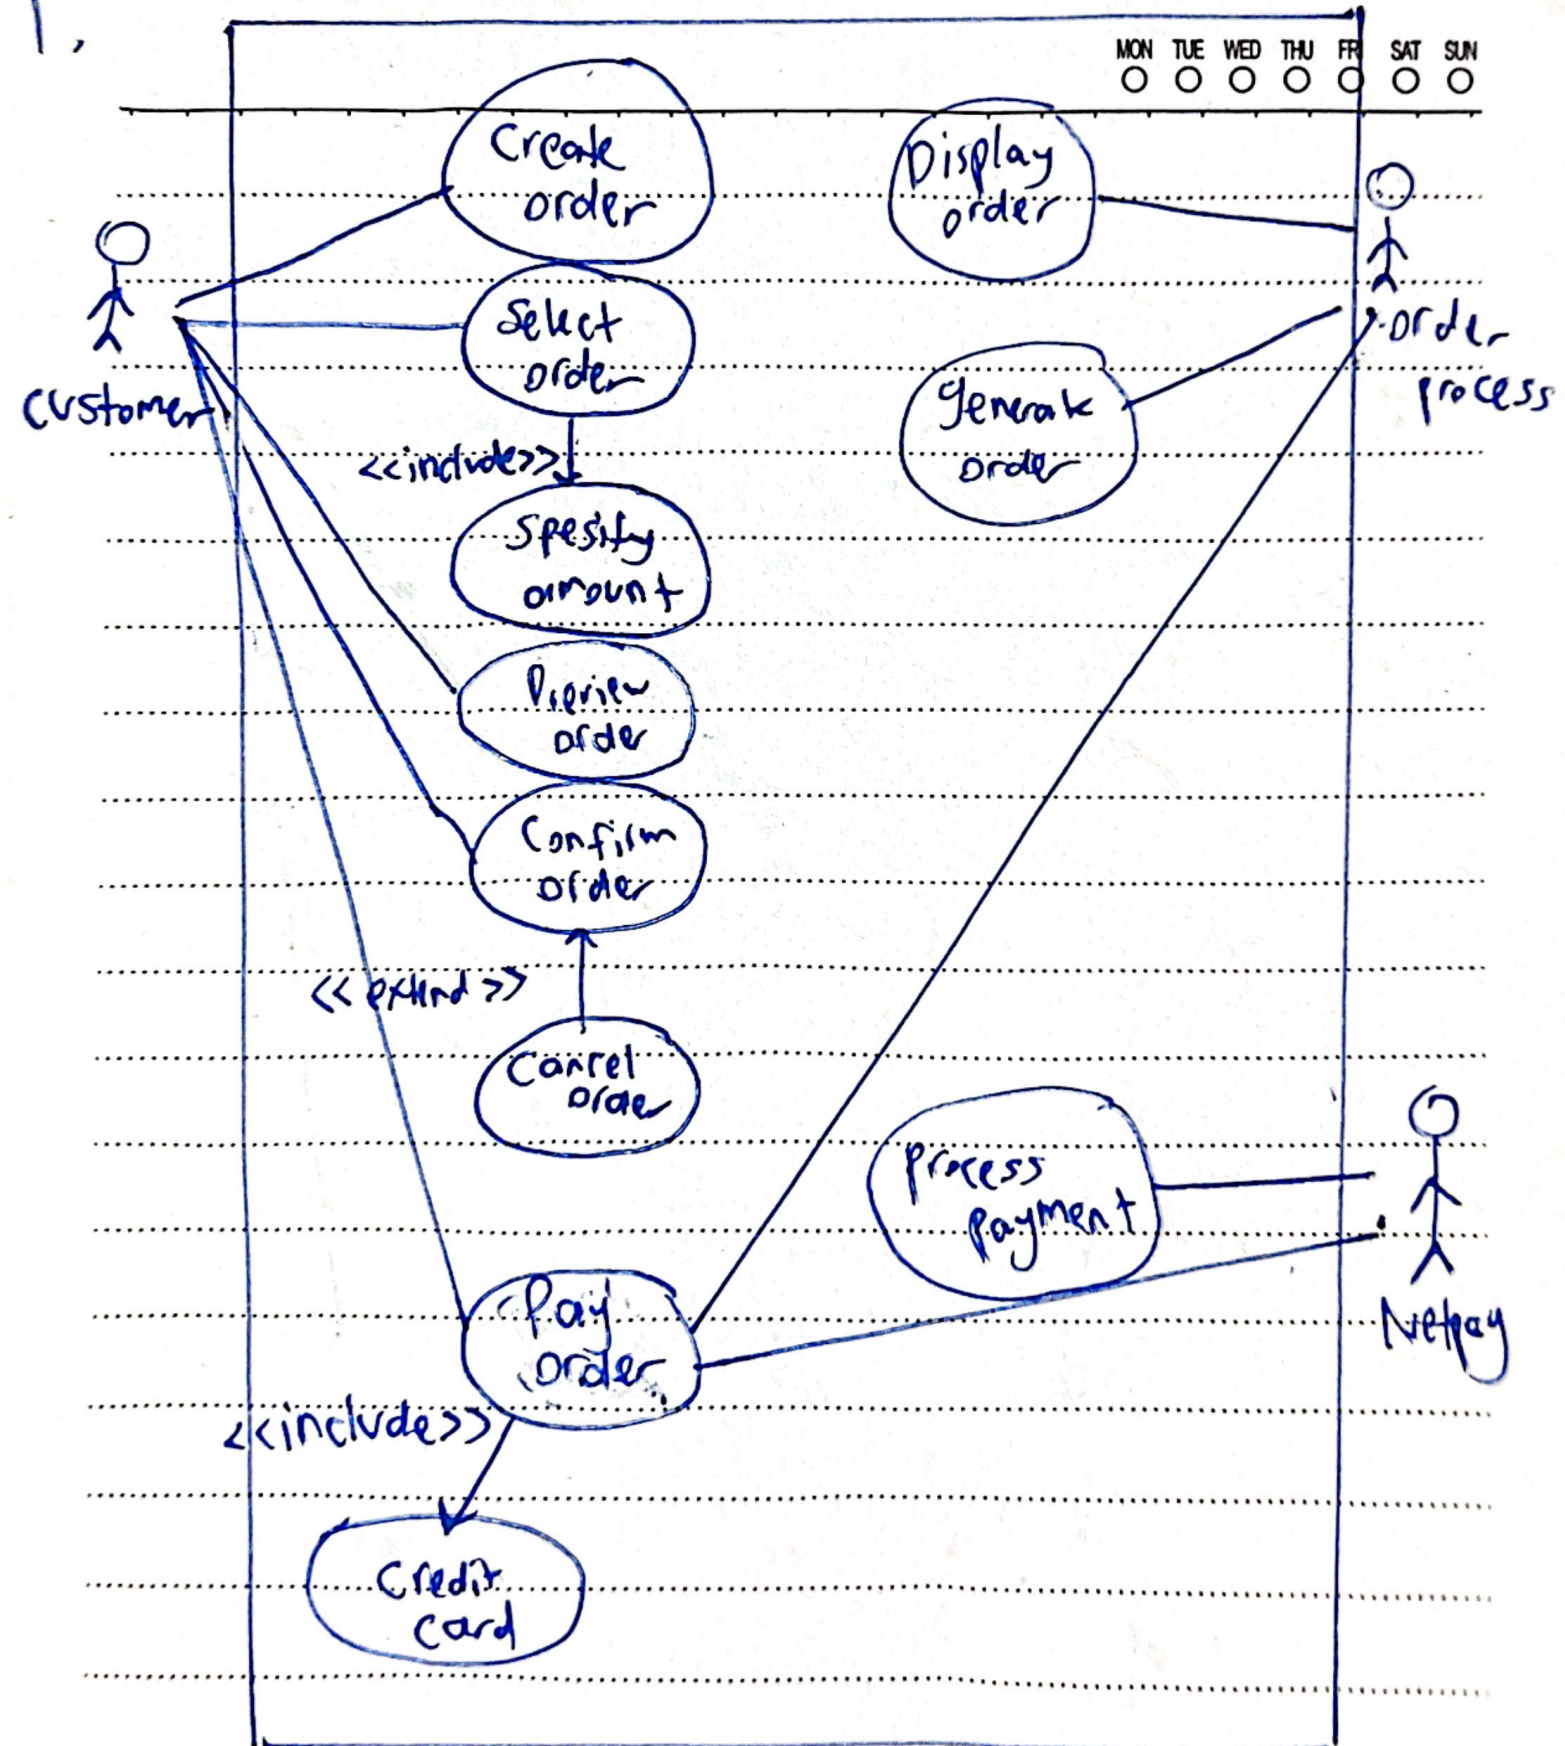 1.
MON TUE WED THU FRI SAT SUN
Create
order
Display
order
Customer
Select
order
order
process
generate
order
<<include>>
Spesify
amount
Preview
order
Confirm
order
<<extend>>
Cancel
order
process
payment
Netpay
Pay
order
<<include>>
Credit
card